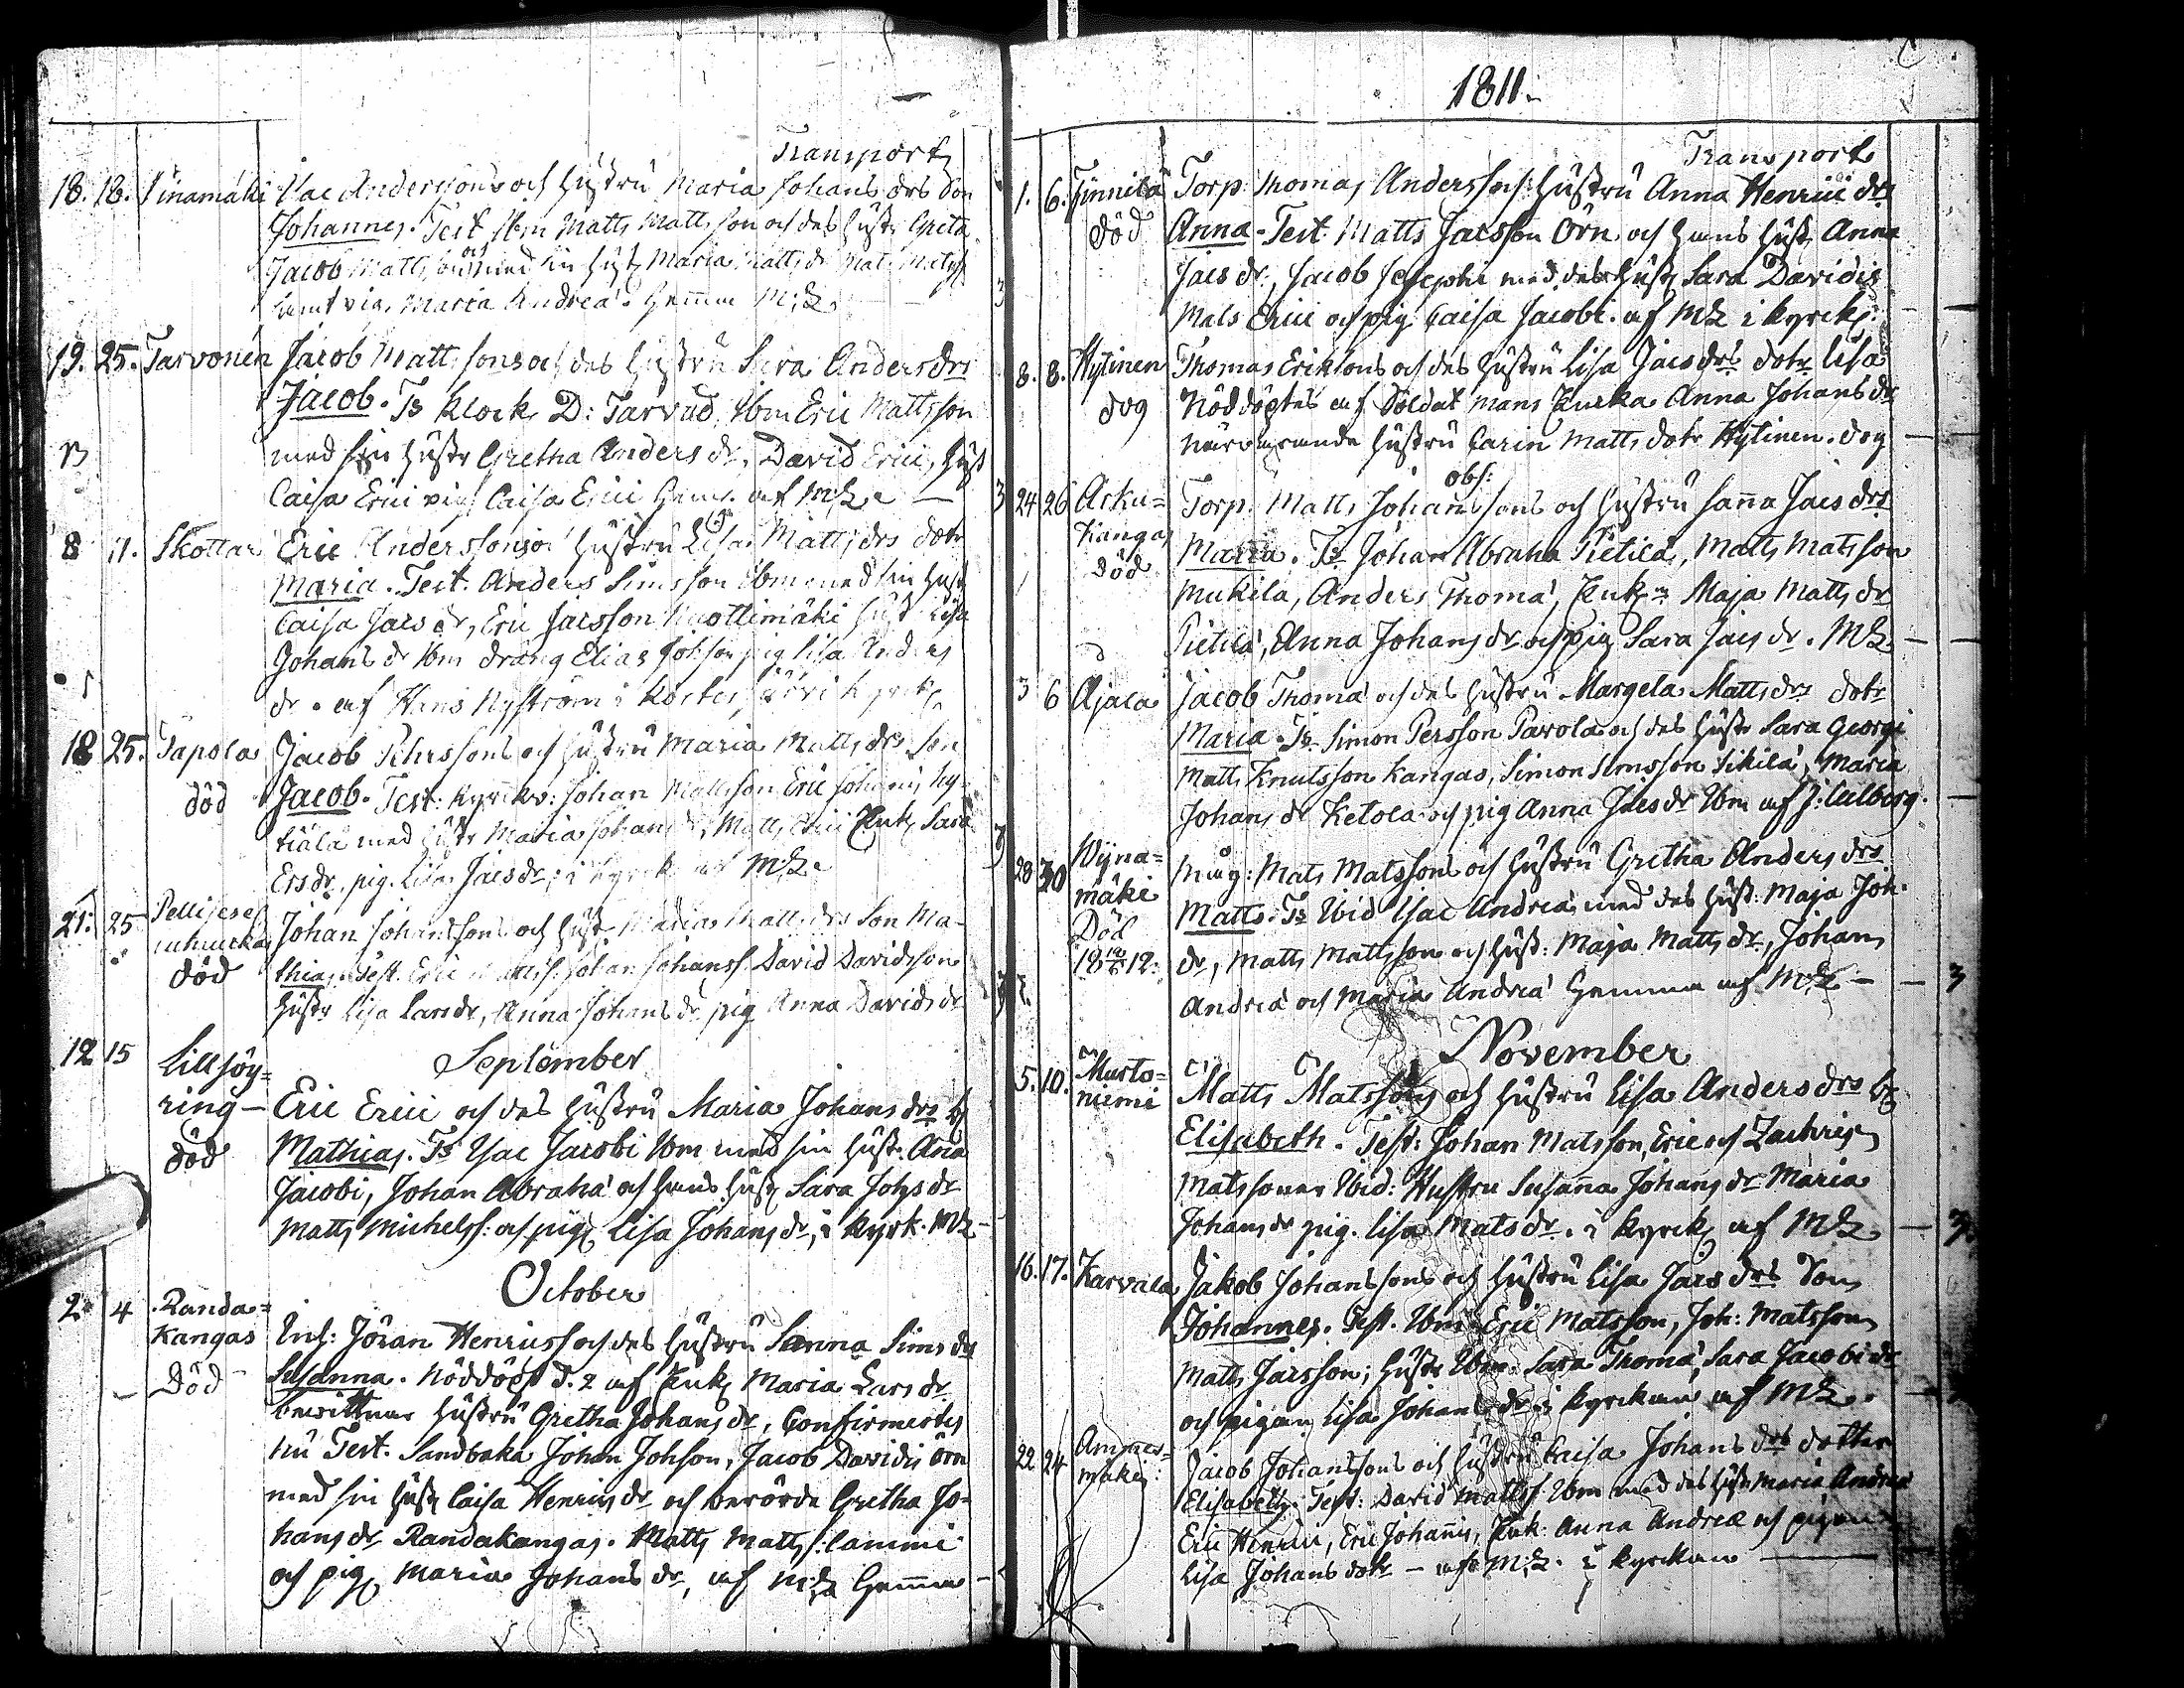 Transport
18. 18. Vinamäki Isac Anderssons och hustru Maria Johans drs Son
Johannes. Test Ibm Matts Mattsson och des hustr Greta
Jacob Mattsson och med sin hust Maria Matts dr Mat. Matss
samt pig. Maria Andreæ. Hemma MZ. 3
19. 25. Tarvonen Jacob Mattsons och des hustru Sara Anders drs
Jacob. Ts Klock. D: Tarvud, Ibm Eric Mattsson
med sin hustr Gretha Anders dr, David Erici, hust
Caisa Erici pig Caisa Erici Hem. af MZ. — 3
8 11. Skottar Eric Anderssons o hustru Lisa Matts drs dotr
Maria. Test. Anders Simsson Ibm med sin hust
Caisa Jacs dr, Eric Jacsson Huottimäki hust Lisa
Johans dr Ibm dräng Elias Johson pig Lisa Anders
dr. af Hans Nyström i kyrck
18 25. Tapola Jacob Pehrssons och hustru Maria Matts drs Son
död Jacob. Test: Kyrckv: Johan Mattsson Eric Johannis Hy-
tiälä med hustr Maria Johans dr, Matts Erici Enk. Sara
Ers dr, pig. Lisa Jacs dr, i kyrck af MZ. 3
21. 25 Pellises
Johan Johanssons och hust Maria Matts drs Son Ma-
död thias. Test. Eric Mattss. Johan Johanss. David Davidsson
hustr Lisa Lars dr, Anna Johans dr pig Anna Davids dr 3
September
12 15 Lillsöy-
ring — Eric Erici och des hustru Maria Johans drs bf
död Mathias. Ts Isac Jacobi Ibm med sin hust. Ana
Jacobi, Johan Abrahæ och hans hust Sara Johs dr
Matts Michelss: och pig Lisa Johans dr, i kyrk. MZ —
October
2 4 Randa-
Kangas Inh: Jöran Henricss och des hustru Sanna Sims drs
Död Susanna. Nöddöpt d. 2 af Enk. Maria Lars dr
bevittnar hustru Gretha Johans dr, Confirmertes
nu Test. Sandbaka Johan Johson, Jacob Davidis Örn
med sin hust Caisa Henrics dr och berörde Gretha Jo-
hans dr Randakangas. Matts Mattss: Cammi
och pig Maria Johans dr, af MZ Hemma —
1811.
Transport
1. 6. Finnilä Torp. Thomas Andersson hustru Anna Henrici drs
död Anna. Test. Matts Jacsson Örn och hans hust Anna
Jacs dr, Jacob Josephi med des hust Sara Davidis
Mats Erici och pig Caisa Jacobi. af MZ i kyrck. —
8. 8. Hytinen Thomas Ericksons och des hustru Lisa Jacs drs dotr Lisa
dog Nöddöptes af Soldat mans Enka Anna Johans dr
närvarande hustru Carin Matts dotr Hytinen. dog —
obs:
24 26 Asku- Torp. Matts Johanssons och hustru Sanna Jacs drs
Kangas
död Maria. Ts Johan Abrahæ Pietilä, Matts Matsson
Mukila, Anders Thomæ, Enk. Maja Matts dr
Pietilä, Anna Johans dr och pig Sara Jacs dr. MZ —
3 6 Ajala Jacob Thomæ och des hustru Margeta Matts drs dotr
Maria. Ts. Simon Persson Parola och des hustr Sara Georgi
Matts Knutsson Kangas, Simon Simsson Sikilä, Maria
Johans dr Ketola och pig Anna Jacs dr Ibm af J: Calborg. —
28 30 Wijna-
mäki Mats Matssons och hustru Gretha Anders drs
Död Matts. Ts Ibid Isac Andreæ med des hust: Maja Joh.
18 12/6 12: dr, Matts Mattsson och hust: Maja Matts dr, Johan
Andreæ och Maria Andreæ Hemma af MZ — — 3
November
5. 10. Musto- Matts Matssons och hustru Lisa Anders drs bf
niemi
Elisabeth. Test: Johan Matsson, Eric och Zachris
Matssoner Ibid: Hustru Susanna Johans dr Maria
Johans dr pig. Lisa Mats dr. i kyrck af MZ — 3.
16. 17. Karvala Jakob Johanssons och hustru Lisa Jacs drs Son
Johannes. Test. Ibm Eric Matsson, Joh: Matsson
Matts Jacsson; hustr Ibm Sara Thomæ, Sara Jacobi dr
och pigan Lisa Johans dr i kyrckan af MZ. —
22 24 Ampias-
mäki Jacob Johanssons och hustru Caisa Johans drs dotter
Elisabeth. Test: David Mattss. Ibm med des hustr Maria Andreæ
Eric Henrici, Eric Johannis, Enk. Anna Andreæ och pigan
Lisa Johans dotr — af MZ. i kyrckan —